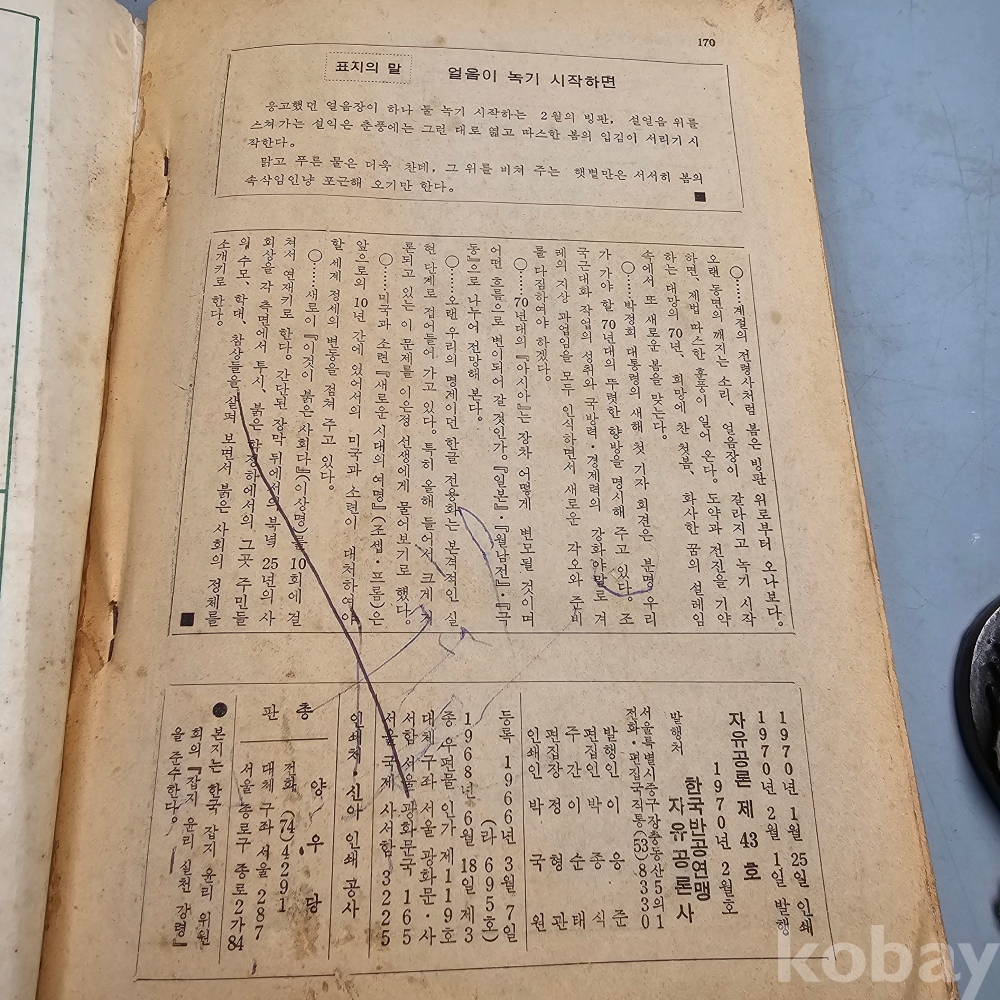 170
표지의 말
얼음이 녹기 시작하면
응고했던 얼음장이 하나 둘 녹기 시작하는 2월의 빙판, 설얼음 위를
스쳐가는 설익은 춘풍에는 그런 대로 엷고 따스한 봄의 입김이 서리기 시
작한다.
맑고 푸른 물은 더욱 찬데, 그 위를 비쳐 주는 햇볕만은 서서히 봄의
속삭임인냥 포근해 오기만 한다. ■
○……계절의 전령사처럼 봄은 빙판 위로부터 오나보다.
오랜 동면의 깨지는 소리, 얼음장이 갈라지고 녹기 시작
하면, 제법 따스한 훈풍이 일어 온다. 도약과 전진을 기약
하는 대망의 70년, 희망에 찬 첫봄, 화사한 꿈의 설레임
속에서 또 새로운 봄을 맞는다.
○……박정희 대통령의 새해 첫 기자 회견은 분명 우리
가 가야 할 70년대의 뚜렷한 향방을 명시해 주고 있다. 조
국근대화 작업의 성취와 국방력·경제력의 강화야말로 겨
레의 지상 과업임을 모두 인식하면서 새로운 각오와 준비
를 다짐하여야 하겠다.
○……70년대의 『아시아』는 장차 어떻게 변모될 것이며
어떤 흐름으로 변이되어 갈 것인가. 『일본』·『월남전』·『극
동』으로 나누어 전망해 본다.
○……오랜 우리의 명계이던 한글 전용화는 본격적인 실
현 단계로 접어들어 가고 있다. 특히 올해 들어서 크게
론되고 있는 이 문제를 이은정 선생에게 물어보기로 했다.
○……미국과 소련 『새로운 시대의 여명』(조셉·프롬)은
앞으로의 10년 간에 있어서의 미국과 소련이 대처하여야
할 세계 정세의 변동을 점쳐 주고 있다.
○……새로이 『이것이 붉은 사회다』(이상명)를 10회에 걸
쳐서 연재키로 한다. 간단된 장막 뒤에서의 북녘 25년의 사
회상을 각 측면에서 투시, 붉은 함정하에서의 그곳 주민들
의 수모, 학대, 참상들을 살펴 보면서 붉은 사회의 정체를
소개키로 한다. ■
1970년 1월 25일 인쇄
1970년 2월 1일 발행
자유공론 제 43 호
1970년 2월호
발행처 한국반공연맹
자유공론사
서울특별시중구장충동산5의1
전화·편집국직통(53)8330
발행인 이 응 준
편집인 박 종 식
주 간 이 순 태
편집장 정 형 관
인쇄인 박 국 원
등록 1966년 3월 7일
(라 695호)
1968년 6월 18일 제3
종 우편물 인가 제119호
대체 구좌 서울 광화문·사
서함 서울 광화문국 165
서울 국제 사서함 3225
인쇄처·신아 인쇄 공사
총판
양 우 당
전화 (74) 4291
대체 구좌 서울 287
서울 종로구 종로2가84
●본지는 한국 잡지 윤리 위원
회의 『잡지 윤리 실천 강령』
을 준수한다.
kobay